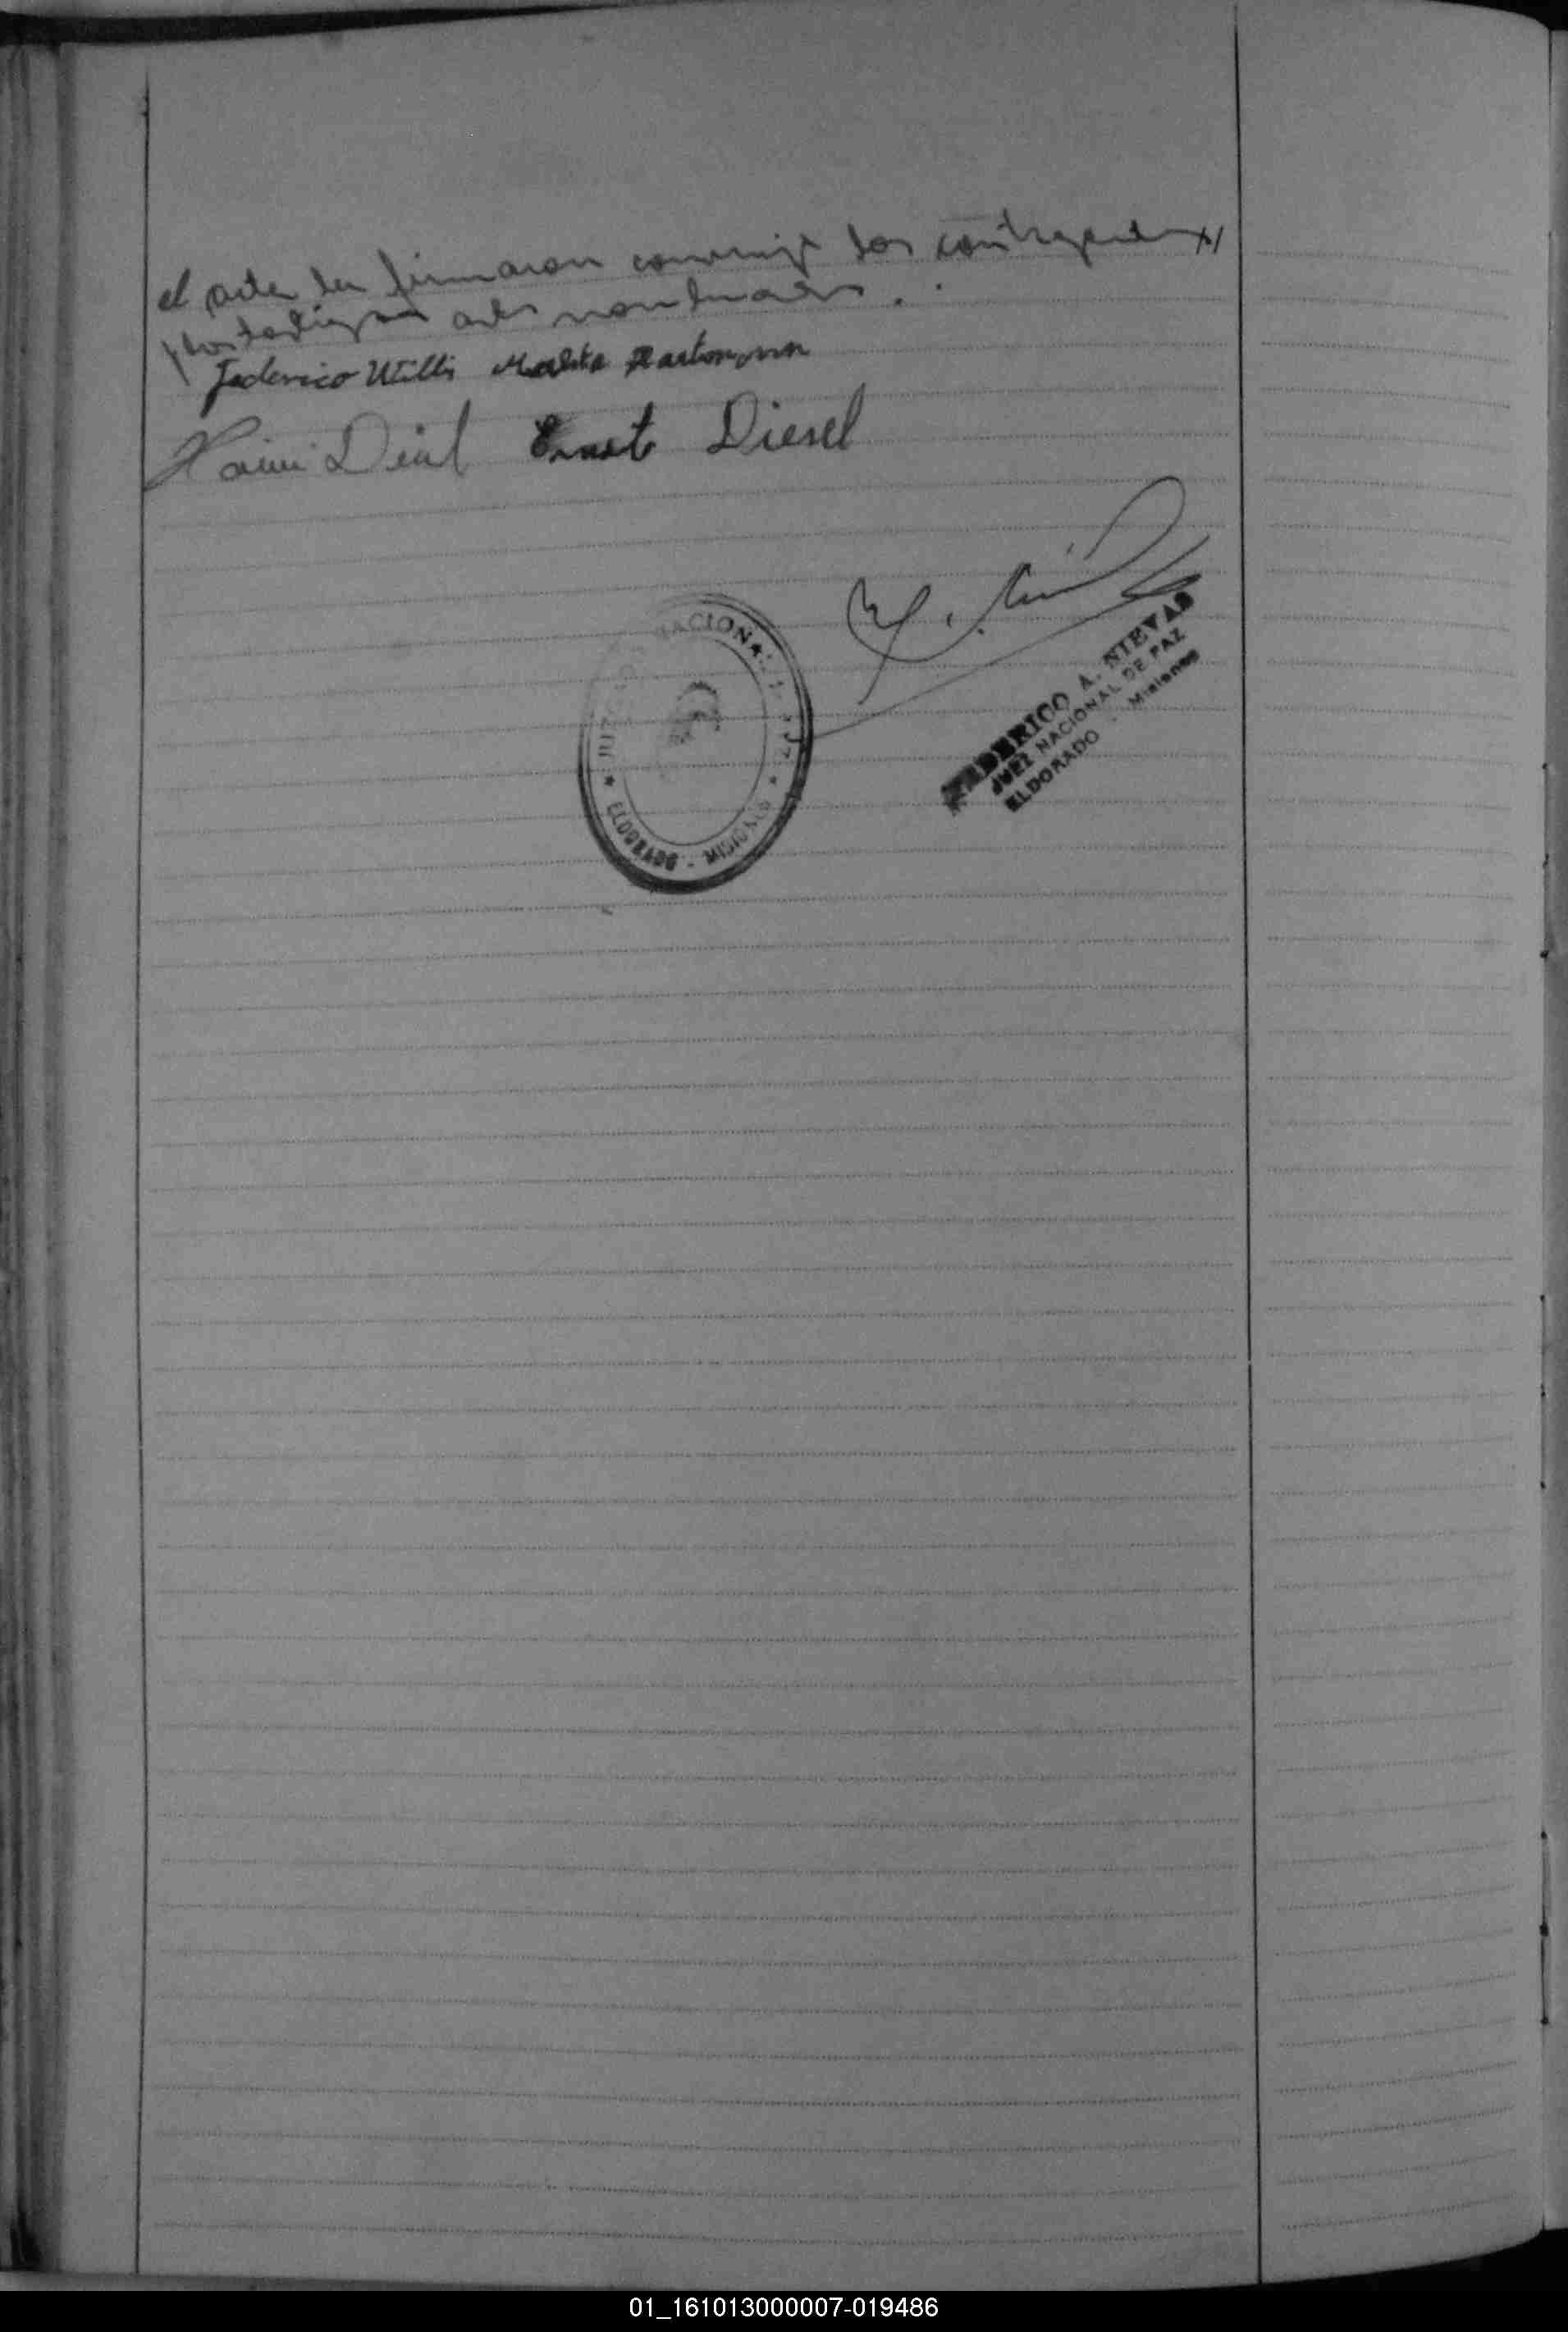 el acta la firmaron conmigo los contrayentes
los testigos antes nombrados.
Federico Willi Hartmann
Diesel
JUZGADO NACIONAL DE PAZ
ELDORADO - MISIONES
FEDERICO A. NIEVAS
JUEZ NACIONAL DE PAZ
ELDORADO - Misiones
01_161013000007-019486